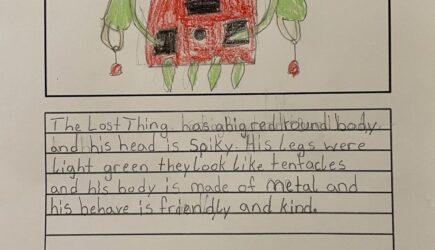 The Lost Thing has a big red round body.
and his head is spiky. His legs were
light green they look like tentacles
and his body is made of metal and
his behave is friendly and kind.